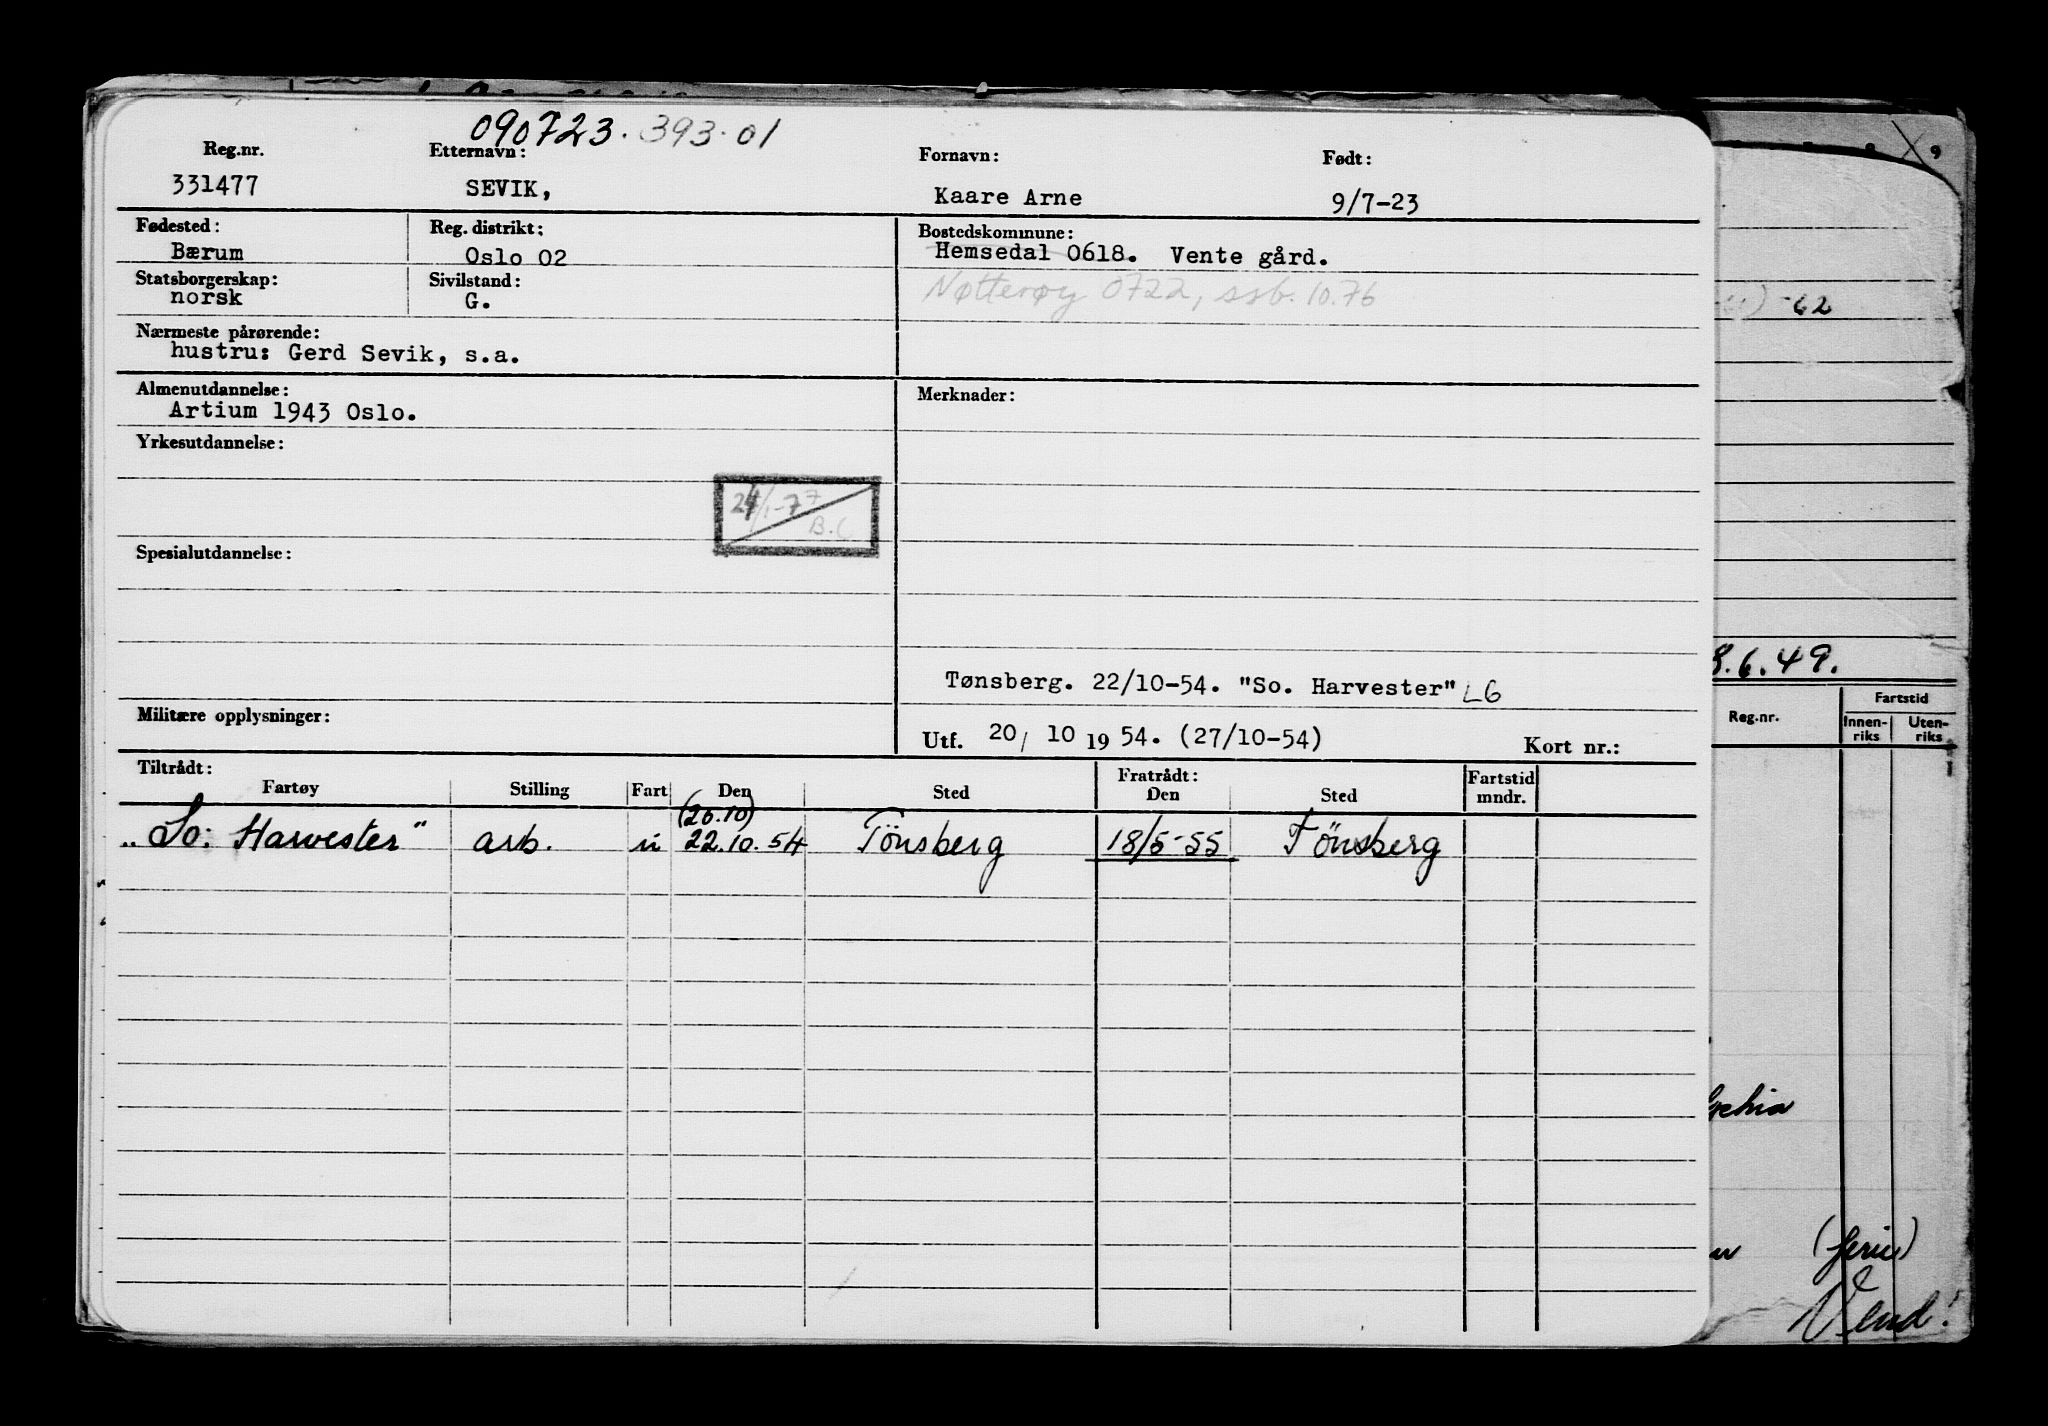 090723. 393.01
Reg.nr. Etternavn: Fornavn: Født:
331477 SEVIK, Kaare Arne 9/7-23
Fødested: Reg. distrikt: Bostedskommune:
Bærum Oslo 02 Hemsedal 0618. Vente gård.
Statsborgerskap: Sivilstand:
norsk G. Nøtterøy 0722, ssb. 10.76
Nærmeste pårørende:
hustru: Gerd Sevik, s.a.
Almenutdannelse: Merknader:
Artium 1943 Oslo.
Yrkesutdannelse:
24/1-77
B.C
Spesialutdannelse:
Tønsberg. 22/10-54. "So. Harvester" LG
Militære opplysninger:
Utf. 20/ 10 19 54. (27/10-54) Kort nr.:
Tiltrådt: Fratrådt: Fartstid
Fartøy Stilling Fart Den Sted Den Sted mndr.
(20.10)
"So. Harvester" arb. u 22.10.54 Tönsberg 18/5-55 Tönsberg
9
-62
8.6.49.
Fartstid
Reg.nr. Innen-riks Uten-riks
(ferie)
Vend!